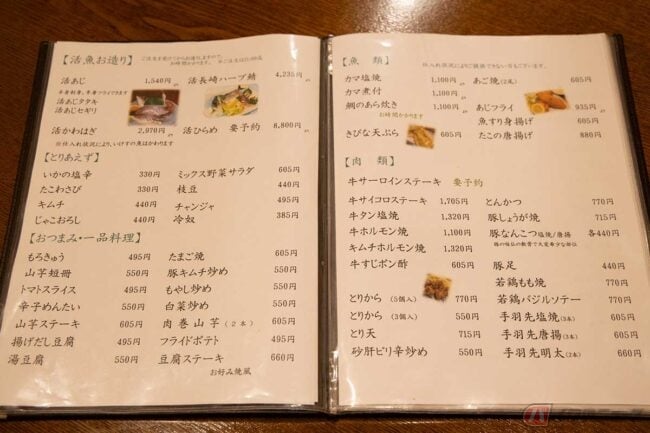 【活魚お造り】
ご注文を受けてからお造りしますので、
お時間かかります。
活あじ 1,540円
半身刺身、半身フライできます
活あじタタキ
活あじセギリ
活長崎ハーブ鯖 4,235円
活かわはぎ 2,970円
活ひらめ 要予約 8,800円
※仕入れ状況により、いけすの魚はかわります
【とりあえず】
いかの塩辛 330円
たこわさび 330円
キムチ 440円
じゃこおろし 440円
ミックス野菜サラダ 605円
枝豆 440円
チャンジャ 495円
冷奴 385円
【おつまみ・一品料理】
もろきゅう 495円
山芋短冊 550円
トマトスライス 495円
辛子めんたい 550円
山芋ステーキ 605円
揚げだし豆腐 605円
湯豆腐 550円
たまご焼 605円
豚キムチ炒め 550円
もやし炒め 550円
白菜炒め 550円
肉巻山芋(2本) 605円
フライドポテト 495円
豆腐ステーキ 660円
お好み焼風
【魚 類】
仕入れ状況によりご提供できないものもございます。
カマ塩焼 1,100円
カマ煮付 1,100円
鯛のあら炊き 1,100円
お時間かかります
きびな天ぷら 605円
あご焼(2尾) 605円
あじフライ 935円
魚すり身揚げ 605円
たこの唐揚げ 605円
【肉 類】
牛サーロインステーキ 要予約
牛サイコロステーキ 1,705円
牛タン塩焼 1,320円
牛ホルモン焼 1,100円
キムチホルモン焼 1,320円
牛すじポン酢 605円
とりから(5個入) 770円
とりから(3個入) 550円
とり天 715円
砂肝ピリ辛炒め 550円
とんかつ 770円
豚しょうが焼 715円
豚なんこつ 塩焼/唐揚 各440円
豚足 440円
若鶏もも焼 770円
若鶏バジルソテー 770円
手羽先塩焼(3本) 605円
手羽先唐揚(3本) 605円
手羽先明太(2本) 660円